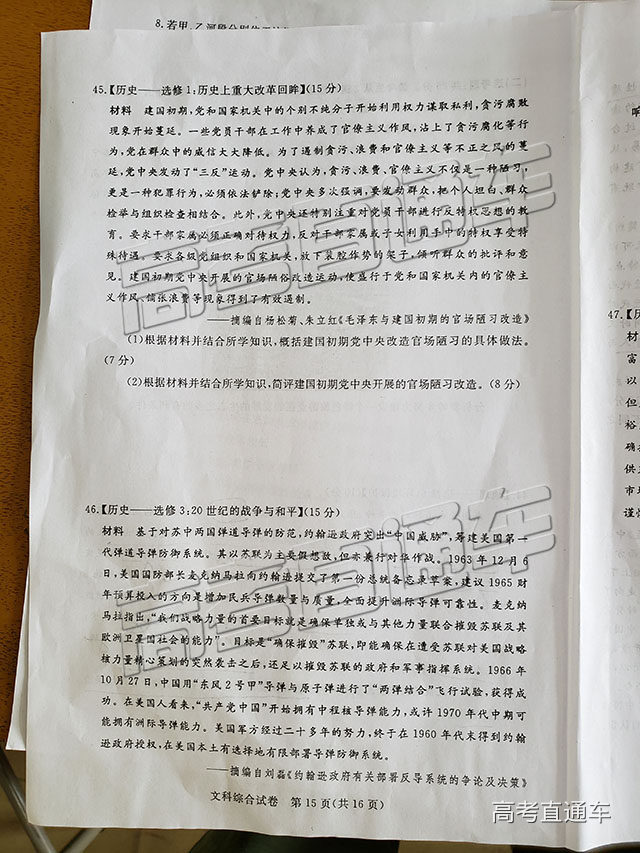 8.若甲、乙河段分别
45.【历史——选修1:历史上重大改革回眸】(15分)
材料 建国初期,党和国家机关中的个别不纯分子开始利用权力谋取私利,贪污腐败
现象开始蔓延。一些党员干部在工作中养成了官僚主义作风,沾上了贪污腐化等行
为,党在群众中的威信大大降低。为了遏制贪污、浪费和官僚主义等不正之风的蔓
延,党中央发动了“三反”运动。党中央认为,贪污、浪费、官僚主义不仅是一种陋习,
更是一种犯罪行为,必须依法铲除;党中央多次强调,要发动群众,把个人坦白、群众
检举与组织检查相结合。此外,党中央还特别注重对党员干部进行反特权思想的教
育。要求干部家属必须正确对待权力,反对干部家属或子女利用手中的特权享受特
殊待遇。要求各级党组织和国家机关,放下装腔作势的架子,倾听群众的批评和意
见。建国初期党中央开展的官场陋俗改造运动,使盛行于党和国家机关内的官僚主
义作风、铺张浪费等现象得到了有效遏制。
——摘编自杨松菊、朱立红《毛泽东与建国初期的官场陋习改造》
(1)根据材料并结合所学知识,概括建国初期党中央改造官场陋习的具体做法。
(7分)
(2)根据材料并结合所学知识,简评建国初期党中央开展的官场陋习改造。(8分)
46.【历史——选修3:20世纪的战争与和平】(15分)
材料 基于对苏中两国弹道导弹的防范,约翰逊政府突出“中国威胁”,筹建美国第一
代弹道导弹防御系统。其以苏联为主要假想敌,但亦兼行对华作战。1963年12月6
日,美国国防部长麦克纳马拉向约翰逊提交了第一份总统备忘录草案,建议1965财
年预算投入的方向是增加民兵导弹数量与质量,全面提升洲际导弹可靠性。麦克纳
马拉指出,“我们战略力量的首要目标就是确保单独或与其他力量联合摧毁苏联及其
欧洲卫星国社会的能力”。目标是“确保摧毁”苏联,即能确保在遭受苏联对美国战略
核力量精心策划的突然袭击之后,还足以摧毁苏联的政府和军事指挥系统。1966年
10月27日,中国用“东风2号甲”导弹与原子弹进行了“两弹结合”飞行试验,获得成
功。在美国人看来,“共产党中国”开始拥有中程核导弹能力,或许1970年代中期可
能拥有洲际导弹能力。美国军方经过二十多年的努力,终于在1960年代末得到约翰
逊政府授权,在美国本土有选择地有限部署导弹防御系统。
——摘编自刘磊《约翰逊政府有关部署反导系统的争论及决策》
文科综合试卷 第15页(共16页)
47.【
材
但
裕
供
市
谨
高考直通车
高考直通车
高考直通车